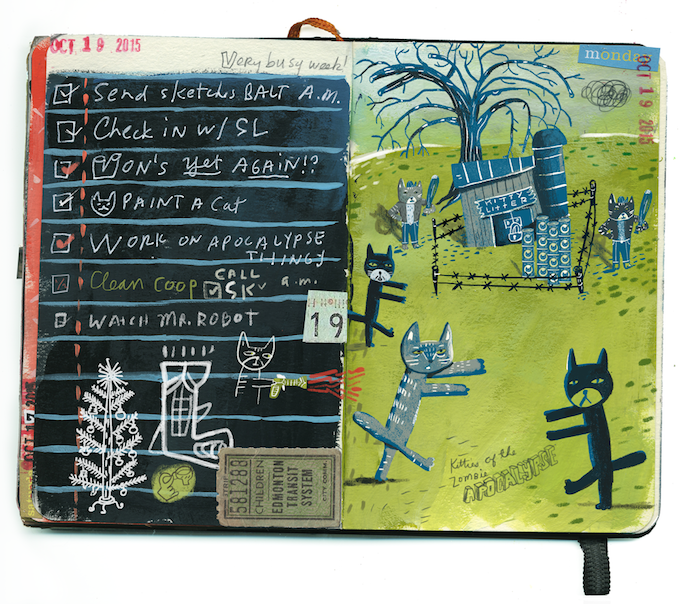 OCT 19 2015
Very busy week!
Send sketches BALT A.M.
Check in w/ SL
MON'S yet AGAIN!?
PAINT A Cat
WORK ON APOCALYPSE
THINGY
Clean coop CALL
SK a.m.
WATCH MR. ROBOT
19
581298
CHILDREN
EDMONTON
TRANSIT
SYSTEM
CITY COMM.
monday
OCT 19 2015
KITTY
LITTER
Kitties of the
Zombie
APOCALYPSE